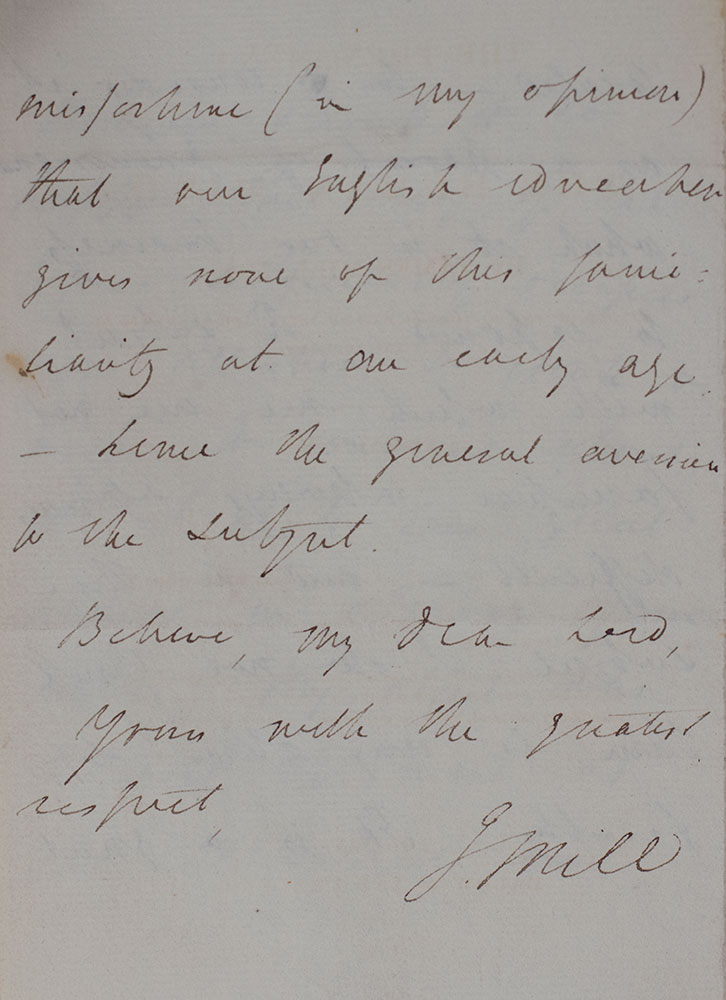 misfortune (in my opinion)
that our English education
gives none of this fami-
liarity at an early age
— hence the general aversion
to the subject.
Believe, my dear Lord,
Yours with the greatest
respect,
J. Mill